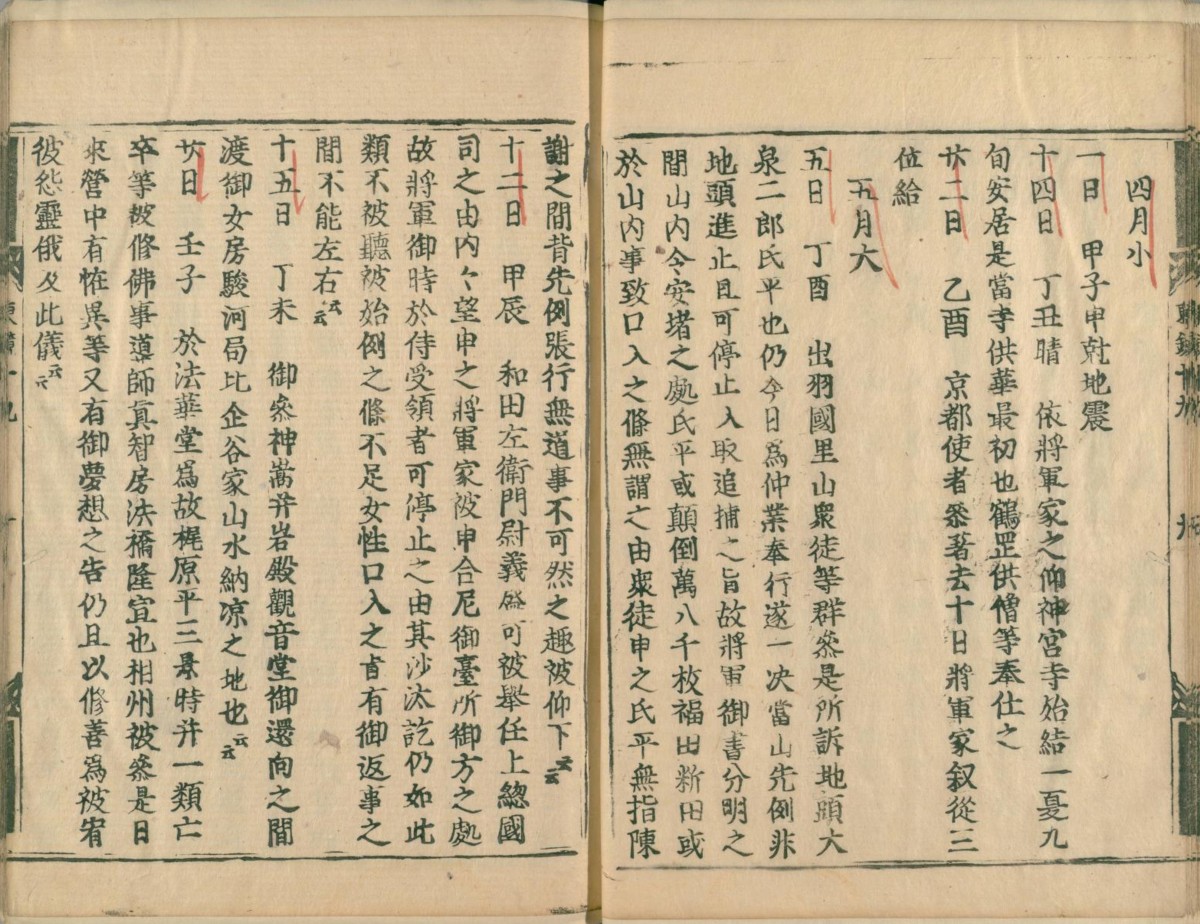 四月小
一日　甲子申尅地震
十四日　丁丑晴　依將軍家之仰神宮寺始結一夏九
旬安居是當寺供華最初也鶴罡供僧等奉仕之
廿二日　乙酉　京都使者參著去十日將軍家叙從三
位給
五月大
五日　丁酉　出羽國里山衆徒等群參是所訴地頭大
泉二郎氏平也仍今日爲仲業奉行遂一决當山先例非
地頭進止且可停止入取追捕之旨故將軍御書分明之
間山内令安堵之處氏平或顛倒萬八千枚福田新田或
於山内事致口入之條無謂之由衆徒申之氏平無指陳
謝之間背先例張行無道事不可然之趣被仰下云云
十二日　甲辰　和田左衛門尉義盛可被舉任上總國
司之由内々望申之將軍家被申合尼御臺所御方之處
故將軍御時於侍受領者可停止之由其沙汰訖仍如此
類不被聽被始例之條不足女性口入之旨有御返事之
間不能左右云云
十五日　丁未　御參神嵩并岩殿觀音堂御還向之間
渡御女房駿河局比企谷家山水納凉之地也云云
廿日　壬子　於法華堂爲故梶原平三景時并一類亡
卒等被修佛事導師眞智房法橋隆宣也相州被參是日
來營中有恠異等又有御夢想之告仍且以修善爲被宥
彼怨靈俄及此儀云云
東鑑十九